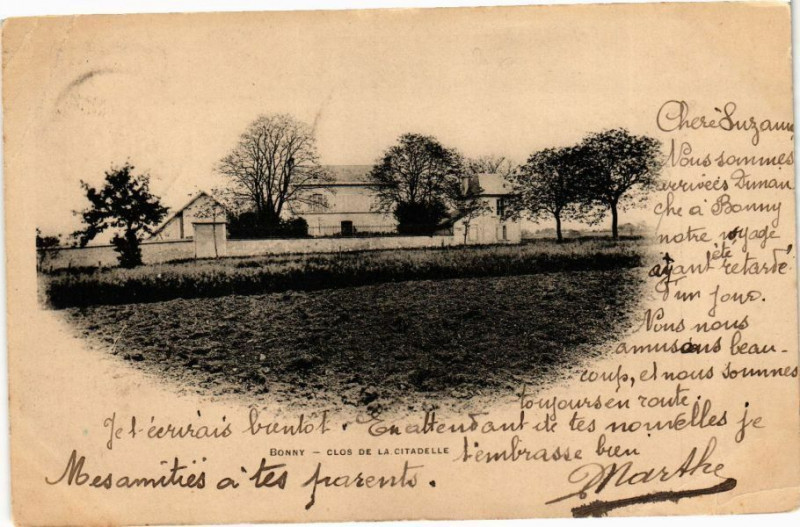 Cherè Suzanne
Nous sommes
arrivées Diman
che à Bonny
notre voyage
ayant été retardé
d'un jour.
Nous nous
amusons beau-
coup, et nous sommes
toujours en route.
Je t'écrirais bientôt. En attendant de tes nouvelles je
t'embrasse bien
BONNY – CLOS DE LA CITADELLE
Mes amitiés à tes parents.
Marthe